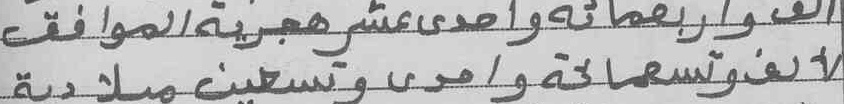 الف واربعمائة واحدى عشر هجرية الموافق
لالف وتسعمائة واحدى وتسعين ميلادية